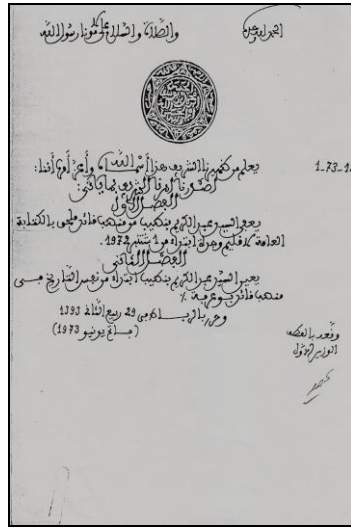 الحمد لله وحده
والصلاة والسلام على مولانا رسول الله
1-73-1
يعلم من ظهيرنا الشريف هذا أسماه الله وأعز أمره أننا:
أصدرنا أمرنا الشريف بما يأتي:
الفصل الأول
يعفى السيد عبد الكريم من منصب قائد ملحق بالكتابة
العامة لإقليم وجدة ابتداء من 1 شتنبر 1972.
الفصل الثاني
يعين السيد عبد الكريم ابتداء من نفس التاريخ في
منصب قائد بوعرفة ٪
وحرر بالرباط في 29 ربيع الثاني 1393
(فاتح يونيو 1973)
وقعه بالعطف
الوزير الأول